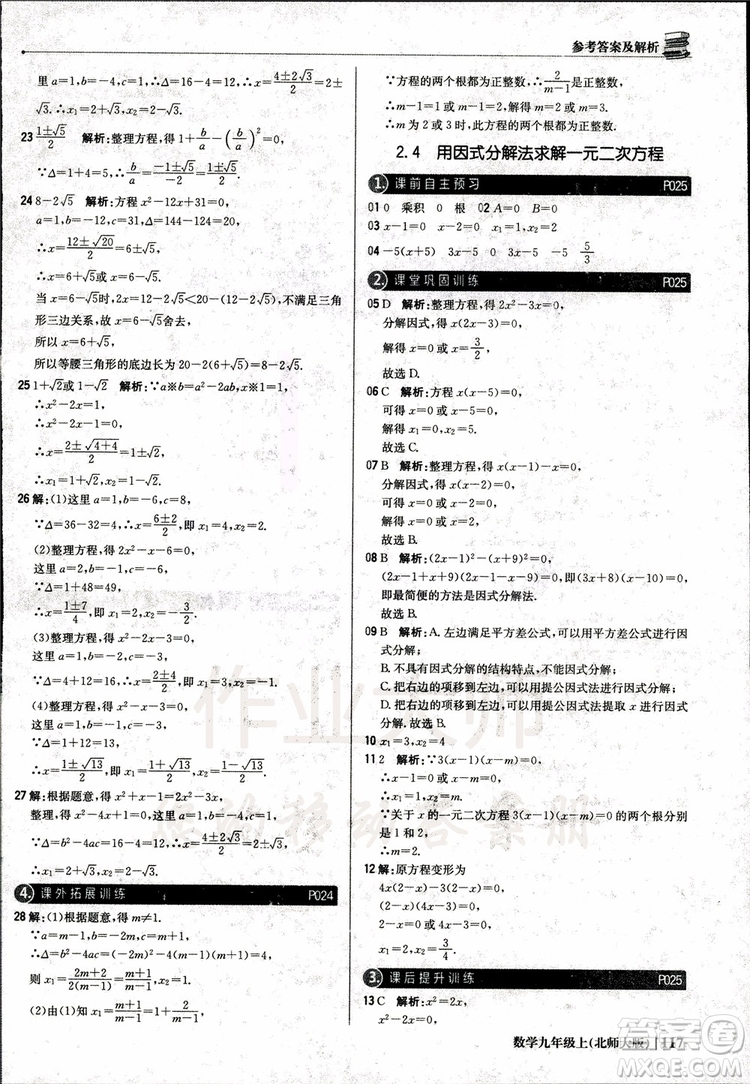 参考答案及解析
里 a=1,b=-4,c=1,∴Δ=16-4=12,∴x=\frac{4±2\sqrt{3}}{2}=2±
\sqrt{3}.∴x_1=2+\sqrt{3},x_2=2-\sqrt{3}.
23 \frac{1±\sqrt{5}}{2} 解析:整理方程,得 1+\frac{b}{a}-(\frac{b}{a})^2=0,
∵Δ=1+4=5,∴\frac{b}{a}=\frac{-1±\sqrt{5}}{-2}=\frac{1±\sqrt{5}}{2}.
24 8-2\sqrt{5} 解析:方程 x^2-12x+31=0,
a=1,b=-12,c=31,Δ=144-124=20,
∴x=\frac{12±\sqrt{20}}{2}=6±\sqrt{5},
∴x=6+\sqrt{5}或 x=6-\sqrt{5}.
当 x=6-\sqrt{5}时,2x=2(6-\sqrt{5})<20-2x,不满足三角
形三边关系,∴x=6-\sqrt{5}舍去,
所以 x=6+\sqrt{5},
所以等腰三角形的底边长为 20-2(6+\sqrt{5})=8-2\sqrt{5}.
25 1+\sqrt{2}或 1-\sqrt{2} 解析:∵a※b=a^2-2ab,x※1=1,
∴x^2-2x=1,
∴x^2-2x-1=0,
∴x=\frac{2±\sqrt{4+4}}{2}=1±\sqrt{2}.
26 解:(1)这里 a=1,b=-6,c=8,
∵Δ=36-32=4,∴x=\frac{6±2}{2},即 x_1=4,x_2=2.
(2)整理方程,得 2x^2-x-6=0,
这里 a=2,b=-1,c=-6,
∵Δ=1+48=49,
∴x=\frac{1±7}{4},即 x_1=2,x_2=-\frac{3}{2}.
(3)整理方程,得 x^2-2x-3=0,
这里 a=1,b=-2,c=-3,
∵Δ=4+12=16,∴x=\frac{2±4}{2},即 x_1=3,x_2=-1.
(4)整理方程,得 x^2-x-3=0,
这里 a=1,b=-1,c=-3,
∵Δ=1+12=13,
∴x=\frac{1±\sqrt{13}}{2},即 x_1=\frac{1+\sqrt{13}}{2},x_2=\frac{1-\sqrt{13}}{2}.
27 解:根据题意,得 x^2+x-1=3x-2,
整理,得 x^2-2x+1=0,这里 a=1,b=-2,c=1,
∵Δ=b^2-4ac=4-4=0,
∴x=\frac{2±0}{2}=1,∴x_1=x_2=1.
4. 课外拓展训练 P024
28 解:(1)根据题意,得 m≠1.
∵a=m-1,b=-2m,c=m+1,
∴Δ=b^2-4ac=(-2m)^2-4(m-1)(m+1)=4,
则 x_1=\frac{2m+2}{2(m-1)}=\frac{m+1}{m-1},x_2=1.
(2)由(1)知 x_1=\frac{m+1}{m-1}=1+\frac{2}{m-1},
∵方程的两个根都为正整数,∴\frac{2}{m-1}是正整数,
∴m-1=1 或 m-1=2,∴m=2 或 3,
即 m 为 2 或 3 时,此方程的两个根都为正整数.
2.4 用因式分解法求解一元二次方程
1. 课前自主预习 P025
01 0 乘积 0 根 02 A=0 B=0
03 x-1=0 x=0 x_1=1 x_2=0
04 -5(x+5) 3x-5 3x-5 -5 \frac{5}{3}
2. 课堂巩固训练 P025
05 D 解析:整理方程,得 2x^2-3x=0,
分解因式,得 x(2x-3)=0,
解得 x=0 或 x=\frac{3}{2},
故选 D.
06 C 解析:方程 x(x-5)=0,
可得 x=0 或 x-5=0,
解得 x_1=0,x_2=5.
故选 C.
07 B 解析:整理方程,得 x^2-2x=0,
分解因式,得 x(x-2)=0,
可得 x=0 或 x-2=0,
解得 x=0 或 x=2.
故选 B.
08 B 解析:(2x-1)^2-(x+9)^2=0,
(2x-1+x+9)(2x-1-x-9)=0,
即最简便的方法是因式分解法.
09 B 解析:A. 左边满足平方差公式,可以运用公式进行因
式分解;
B. 不具有因式分解的结构特点,不能因式分解;
C. 把右边的项移到左边,可以用提公因式法进行因式分解;
D. 把右边的项移到左边,可以用提公因式法提取 x 因式
分解. 故选 B.
10 x_1=3,x_2=4
11 2 解析:∵3(x-1)(x-m)=0,
∴x-1=0 或 x-m=0,
∴x_1=1,x_2=m.
∵关于 x 的一元二次方程 3(x-1)(x-m)=0 的两个根分别
是 1 和 2,
∴m=2.
12 解:原方程变形为
4x(2-x)-3(2-x)=0,
(2-x)(4x-3)=0,
2-x=0 或 4x-3=0,
x_1=2,x_2=\frac{3}{4}.
3. 课后提升训练 P025
13 C 解析:x^2=2x,
x^2-2x=0,
数学九年级上(北师大版) 117
作业大师